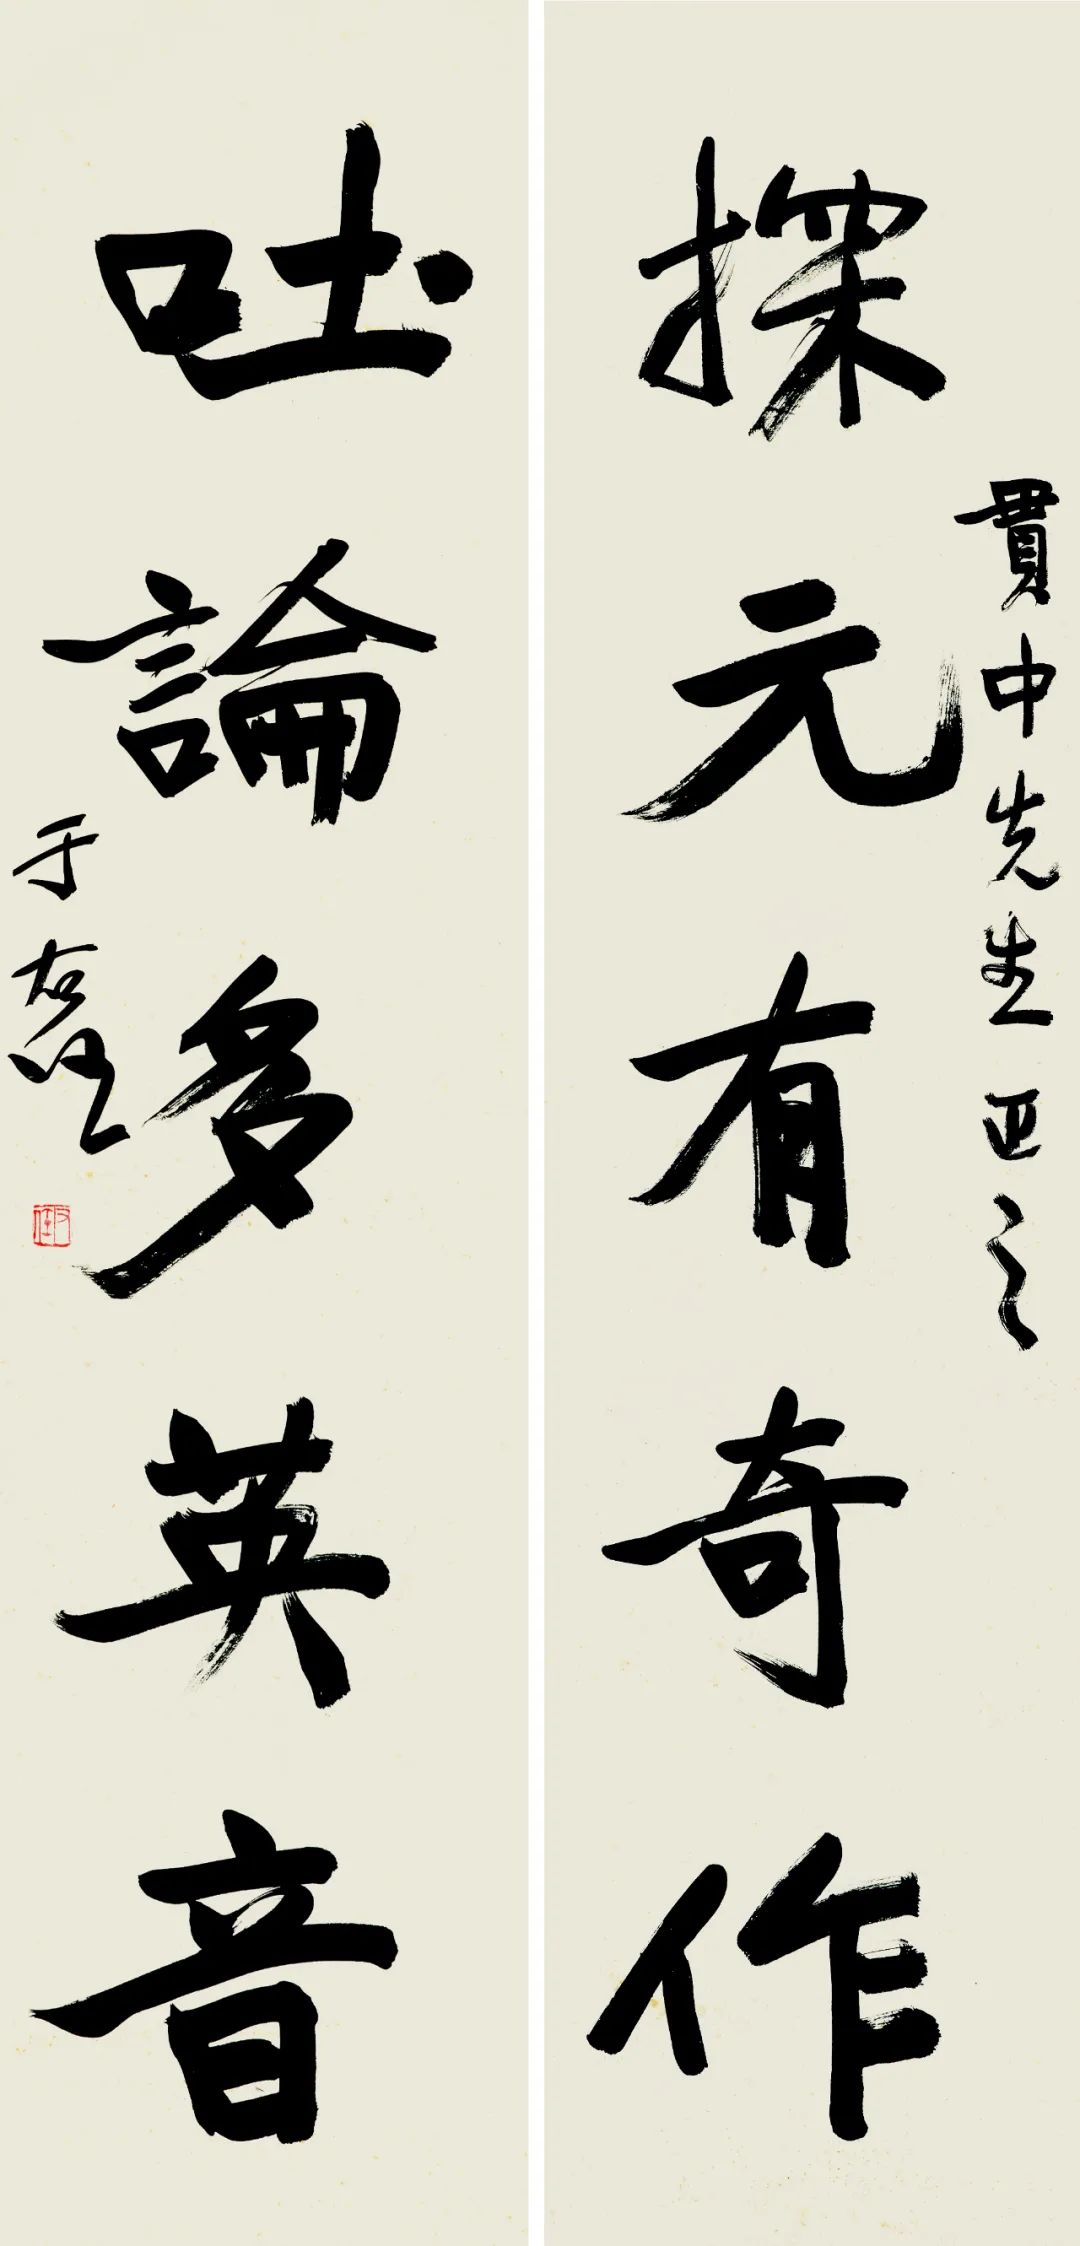 探元有奇作
貫中先生正之
吐論多英音
于右任
右任